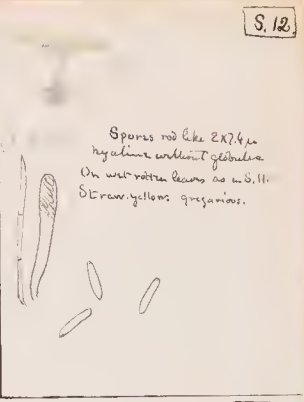 S. 12
Spores rod like 2X7.4µ
hyaline without globules
On wet rotten leaves as in S. 11.
Straw-yellow, gregarious.